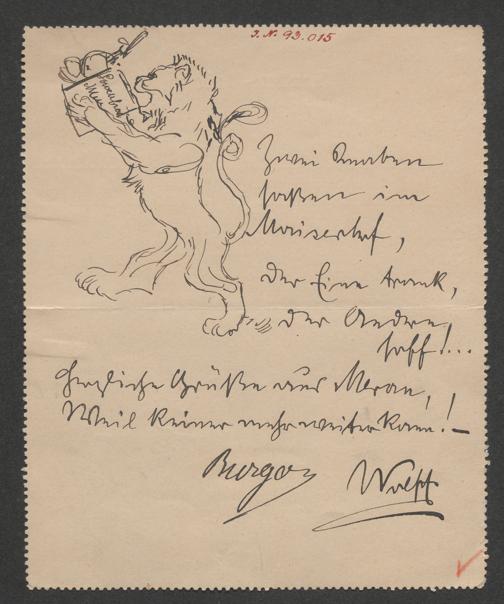 J. N. 93.015
Zwei Knaben
saßen im
Maiserhof,
der Eine trank,
der Andre
soff!...
Herzliche Grüße aus Meran,
Weil keiner mehr weiter kann! –
Wolff